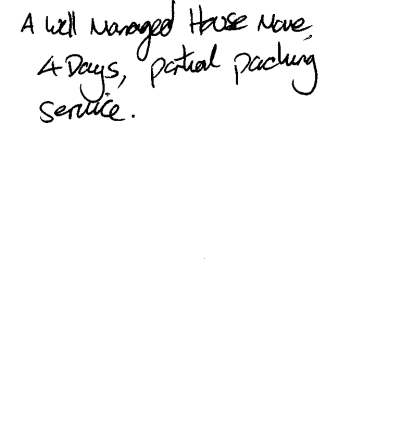 A Well Managed House Move,
4 Days, partial packing
service.